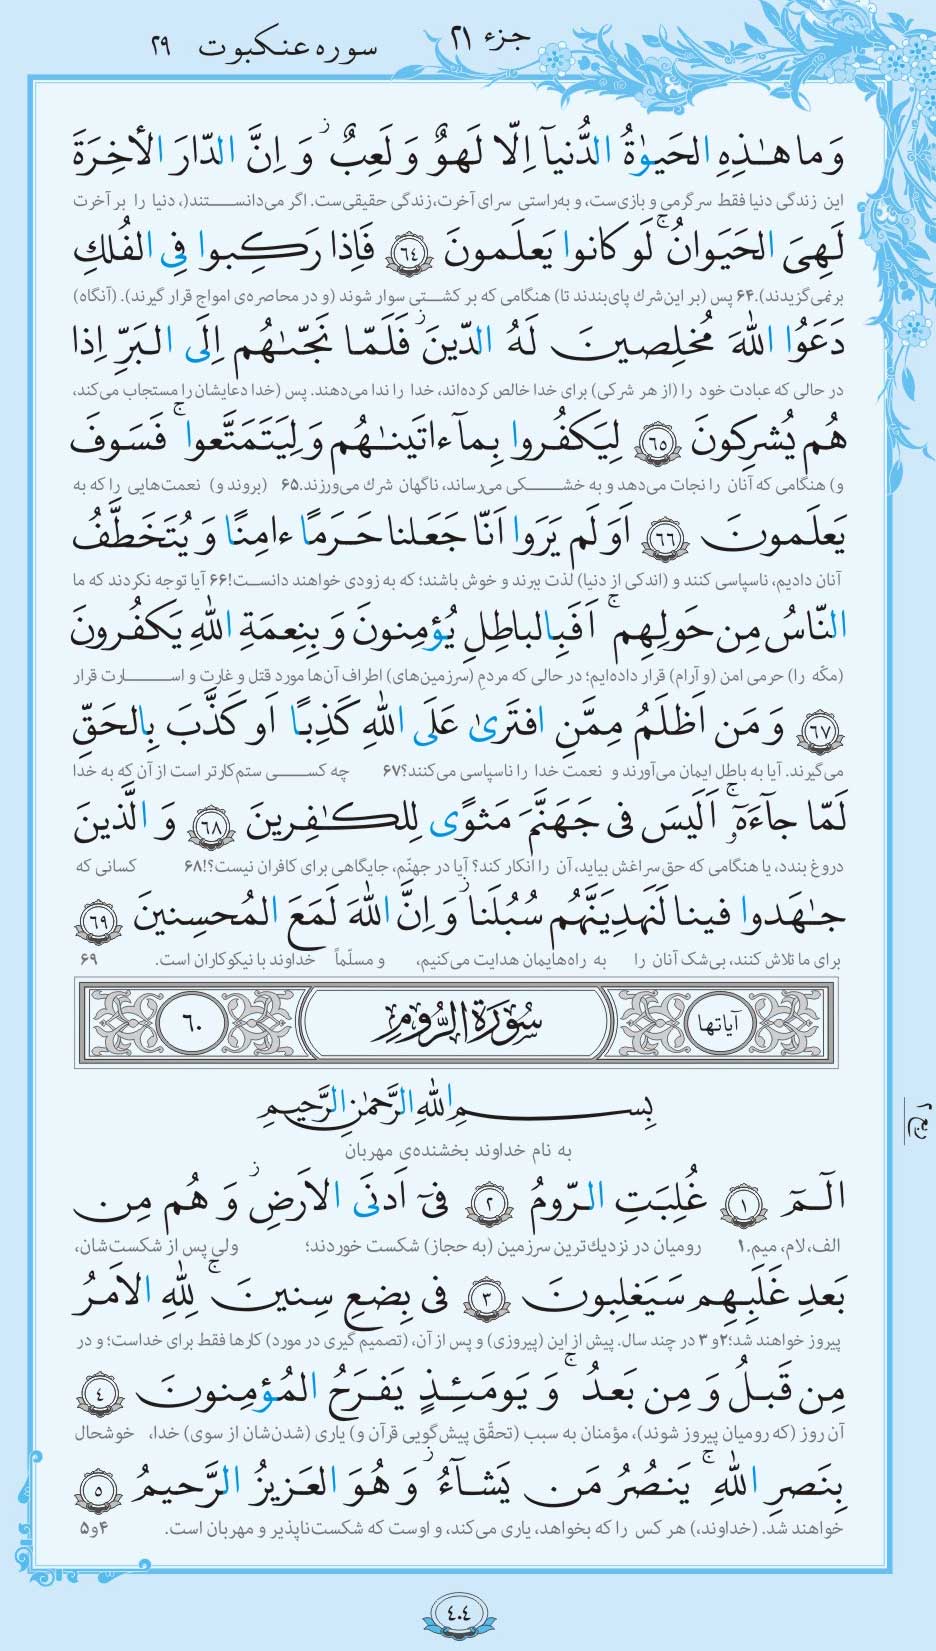 جزء ٢١
سوره عنکبوت ٢٩
وَ ما هٰذِهِ الحَيوٰةُ الدُّنيآ اِلّا لَهوٌ وَ لَعِبٌ ۚ وَ اِنَّ الدّارَ الأخِرَةَ
این زندگی دنیا فقط سرگرمی و بازی‌ست، و به‌راستی سرای آخرت، زندگی حقیقی‌ست. اگر می‌دانســتند(، دنیا را بر آخرت
لَهِىَ الحَيَوانُ ۚ لَو كانوا يَعلَمونَ ﴿٦٤﴾ فَاِذا رَكِبوا فِى الفُلكِ
برنمی‌گزیدند).۶۴ پس (بر این شرك پای‌بندند تا) هنگامی که بر کشــتی سوار شوند (و در محاصره‌ی امواج قرار گیرند). (آنگاه)
دَعَوُا اللّٰهَ مُخلِصينَ لَهُ الدّينَ ۚ فَلَمّا نَجّىٰهُم اِلَى البَرِّ اِذا
در حالی که عبادت خود را (از هر شرکی) برای خدا خالص کرده‌اند، خدا را ندا می‌دهند. پس (خدا دعایشان را مستجاب می‌کند،
هُم يُشرِكونَ ﴿٦٥﴾ لِيَكفُروا بِمآ ءاتَينٰهُم وَ لِيَتَمَتَّعوا ۚ فَسَوفَ
و) هنگامی که آنان را نجات می‌دهد و به خشــکی می‌رساند، ناگهان شرك می‌ورزند.۶۵ (بروند و) نعمت‌هایی را که به
يَعلَمونَ ﴿٦٦﴾ اَوَ لَم يَرَوا اَنّا جَعَلنا حَرَمًا ءامِنًا وَ يُتَخَطَّفُ
آنان دادیم، ناسپاسی کنند و (اندکی از دنیا) لذت ببرند و خوش باشند؛ که به زودی خواهند دانســت!۶۶ آیا توجه نکردند که ما
النّاسُ مِن حَولِهِم ۚ اَفَبِالباطِلِ يُؤمِنونَ وَ بِنِعمَةِ اللّٰهِ يَكفُرونَ
(مکّه را) حرمی امن (و آرام) قرار داده‌ایم؛ در حالی که مردم (سرزمین‌های) اطراف آن‌ها مورد قتل و غارت و اســارت قرار
﴿٦٧﴾ وَ مَن اَظلَمُ مِمَّنِ افتَرىٰ عَلَى اللّٰهِ كَذِبًا اَو كَذَّبَ بِالحَقِّ
می‌گیرند. آیا به باطل ایمان می‌آورند و نعمت خدا را ناسپاسی می‌کنند؟۶۷ چه کســی ستم‌کارتر است از آن که به خدا
لَمّا جآءَهُ ۚ اَلَيسَ فى جَهَنَّمَ مَثوًى لِلكٰفِرينَ ﴿٦٨﴾ وَ الَّذينَ
دروغ بندد، یا هنگامی که حق سراغش بیاید، آن را انکار کند؟ آیا در جهنّم، جایگاهی برای کافران نیست؟!۶۸ کسانی که
جٰهَدوا فينا لَنَهدِيَنَّهُم سُبُلَنا ۚ وَ اِنَّ اللّٰهَ لَمَعَ المُحسِنينَ ﴿٦٩﴾
برای ما تلاش کنند، بی‌شک آنان را به راه‌هایمان هدایت می‌کنیم، و مسلّماً خداوند با نیکوکاران است. ۶۹
آیاتها سُورَةُ الرُّومِ ٦٠
بِسمِ اللّٰهِ الرَّحمٰنِ الرَّحيمِ
به نام خداوند بخشنده‌ی مهربان
الٓمٓ ﴿١﴾ غُلِبَتِ الرّومُ ﴿٢﴾ فىٓ اَدنَى الاَرضِ وَ هُم مِن
الف، لام، میم.۱ رومیان در نزدیك‌ترین سرزمین (به حجاز) شکست خوردند؛ ولی پس از شکست‌شان،
بَعدِ غَلَبِهِم سَيَغلِبونَ ﴿٣﴾ فى بِضعِ سِنينَ ۚ لِلّٰهِ الاَمرُ
پیروز خواهند شد؛۲و ۳ در چند سال. پیش از این (پیروزی) و پس از آن، (تصمیم گیری در مورد) کارها فقط برای خداست؛ و در
مِن قَبلُ وَ مِن بَعدُ ۚ وَ يَومَئِذٍ يَفرَحُ المُؤمِنونَ ﴿٤﴾
آن روز (که رومیان پیروز شوند)، مؤمنان به سبب (تحقّق پیش‌گویی قرآن و) یاری (شدن‌شان از سوی) خدا، خوشحال
بِنَصرِ اللّٰهِ ۚ يَنصُرُ مَن يَشآءُ ۖ وَ هُوَ العَزيزُ الرَّحيمُ ﴿٥﴾
خواهند شد. (خداوند،) هر کس را که بخواهد، یاری می‌کند، و اوست که شکست‌ناپذیر و مهربان است. ۴و۵
٤٠٤